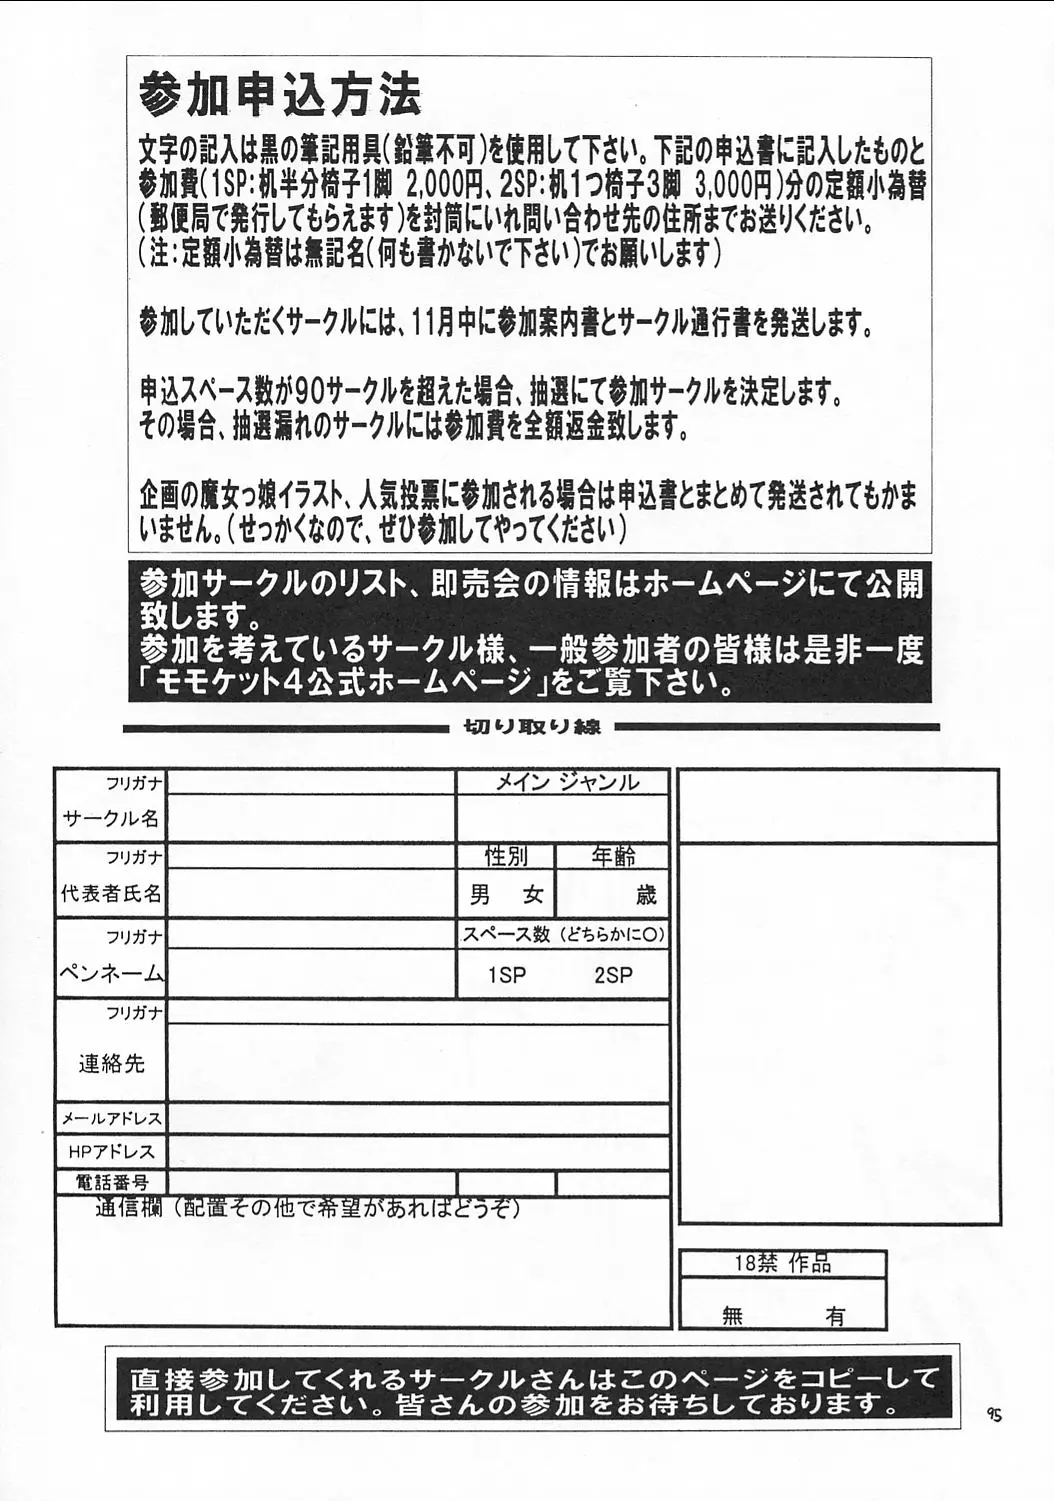 参加申込方法
文字の記入は黒の筆記用具(鉛筆不可)を使用して下さい。下記の申込書に記入したものと
参加費(1SP:机半分椅子1脚 2,000円、2SP:机1つ椅子3脚 3,000円)分の定額小為替
(郵便局で発行してもらえます)を封筒にいれ問い合わせ先の住所までお送りください。
(注:定額小為替は無記名(何も書かないで下さい)でお願いします)
参加していただくサークルには、11月中に参加案内書とサークル通行書を発送します。
申込スペース数が90サークルを超えた場合、抽選にて参加サークルを決定します。
その場合、抽選漏れのサークルには参加費を全額返金致します。
企画の魔女っ娘イラスト、人気投票に参加される場合は申込書とまとめて発送されてもかま
いません。(せっかくなので、ぜひ参加してやってください)
参加サークルのリスト、即売会の情報はホームページにて公開
致します。
参加を考えているサークル様、一般参加者の皆様は是非一度
「モモケット4公式ホームページ」をご覧下さい。
切り取り線
フリガナ メイン ジャンル
サークル名
フリガナ 性別 年齢
代表者氏名 男 女 歳
フリガナ スペース数 (どちらかに〇)
ペンネーム 1SP 2SP
フリガナ
連絡先
メールアドレス
HPアドレス
電話番号
通信欄 (配置その他で希望があればどうぞ)
18禁 作品
無 有
直接参加してくれるサークルさんはこのページをコピーして
利用してください。皆さんの参加をお待ちしております。
95